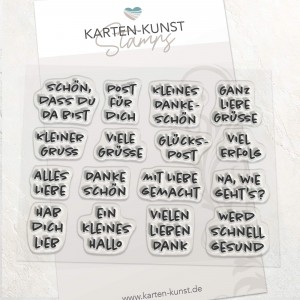 KARTEN-KUNST
Stamps
SCHÖN,
DASS DU
DA BIST
POST
FÜR
DICH
KLEINES
DANKE-
SCHÖN
GANZ
LIEBE
GRÜSSE
KLEINER
GRUSS
VIELE
GRÜSSE
GLÜCKS-
POST
VIEL
ERFOLG
ALLES
LIEBE
DANKE
SCHÖN
MIT LIEBE
GEMACHT
NA, WIE
GEHT'S?
HAB
DICH
LIEB
EIN
KLEINES
HALLO
VIELEN
LIEBEN
DANK
WERD
SCHNELL
GESUND
www.karten-kunst.de